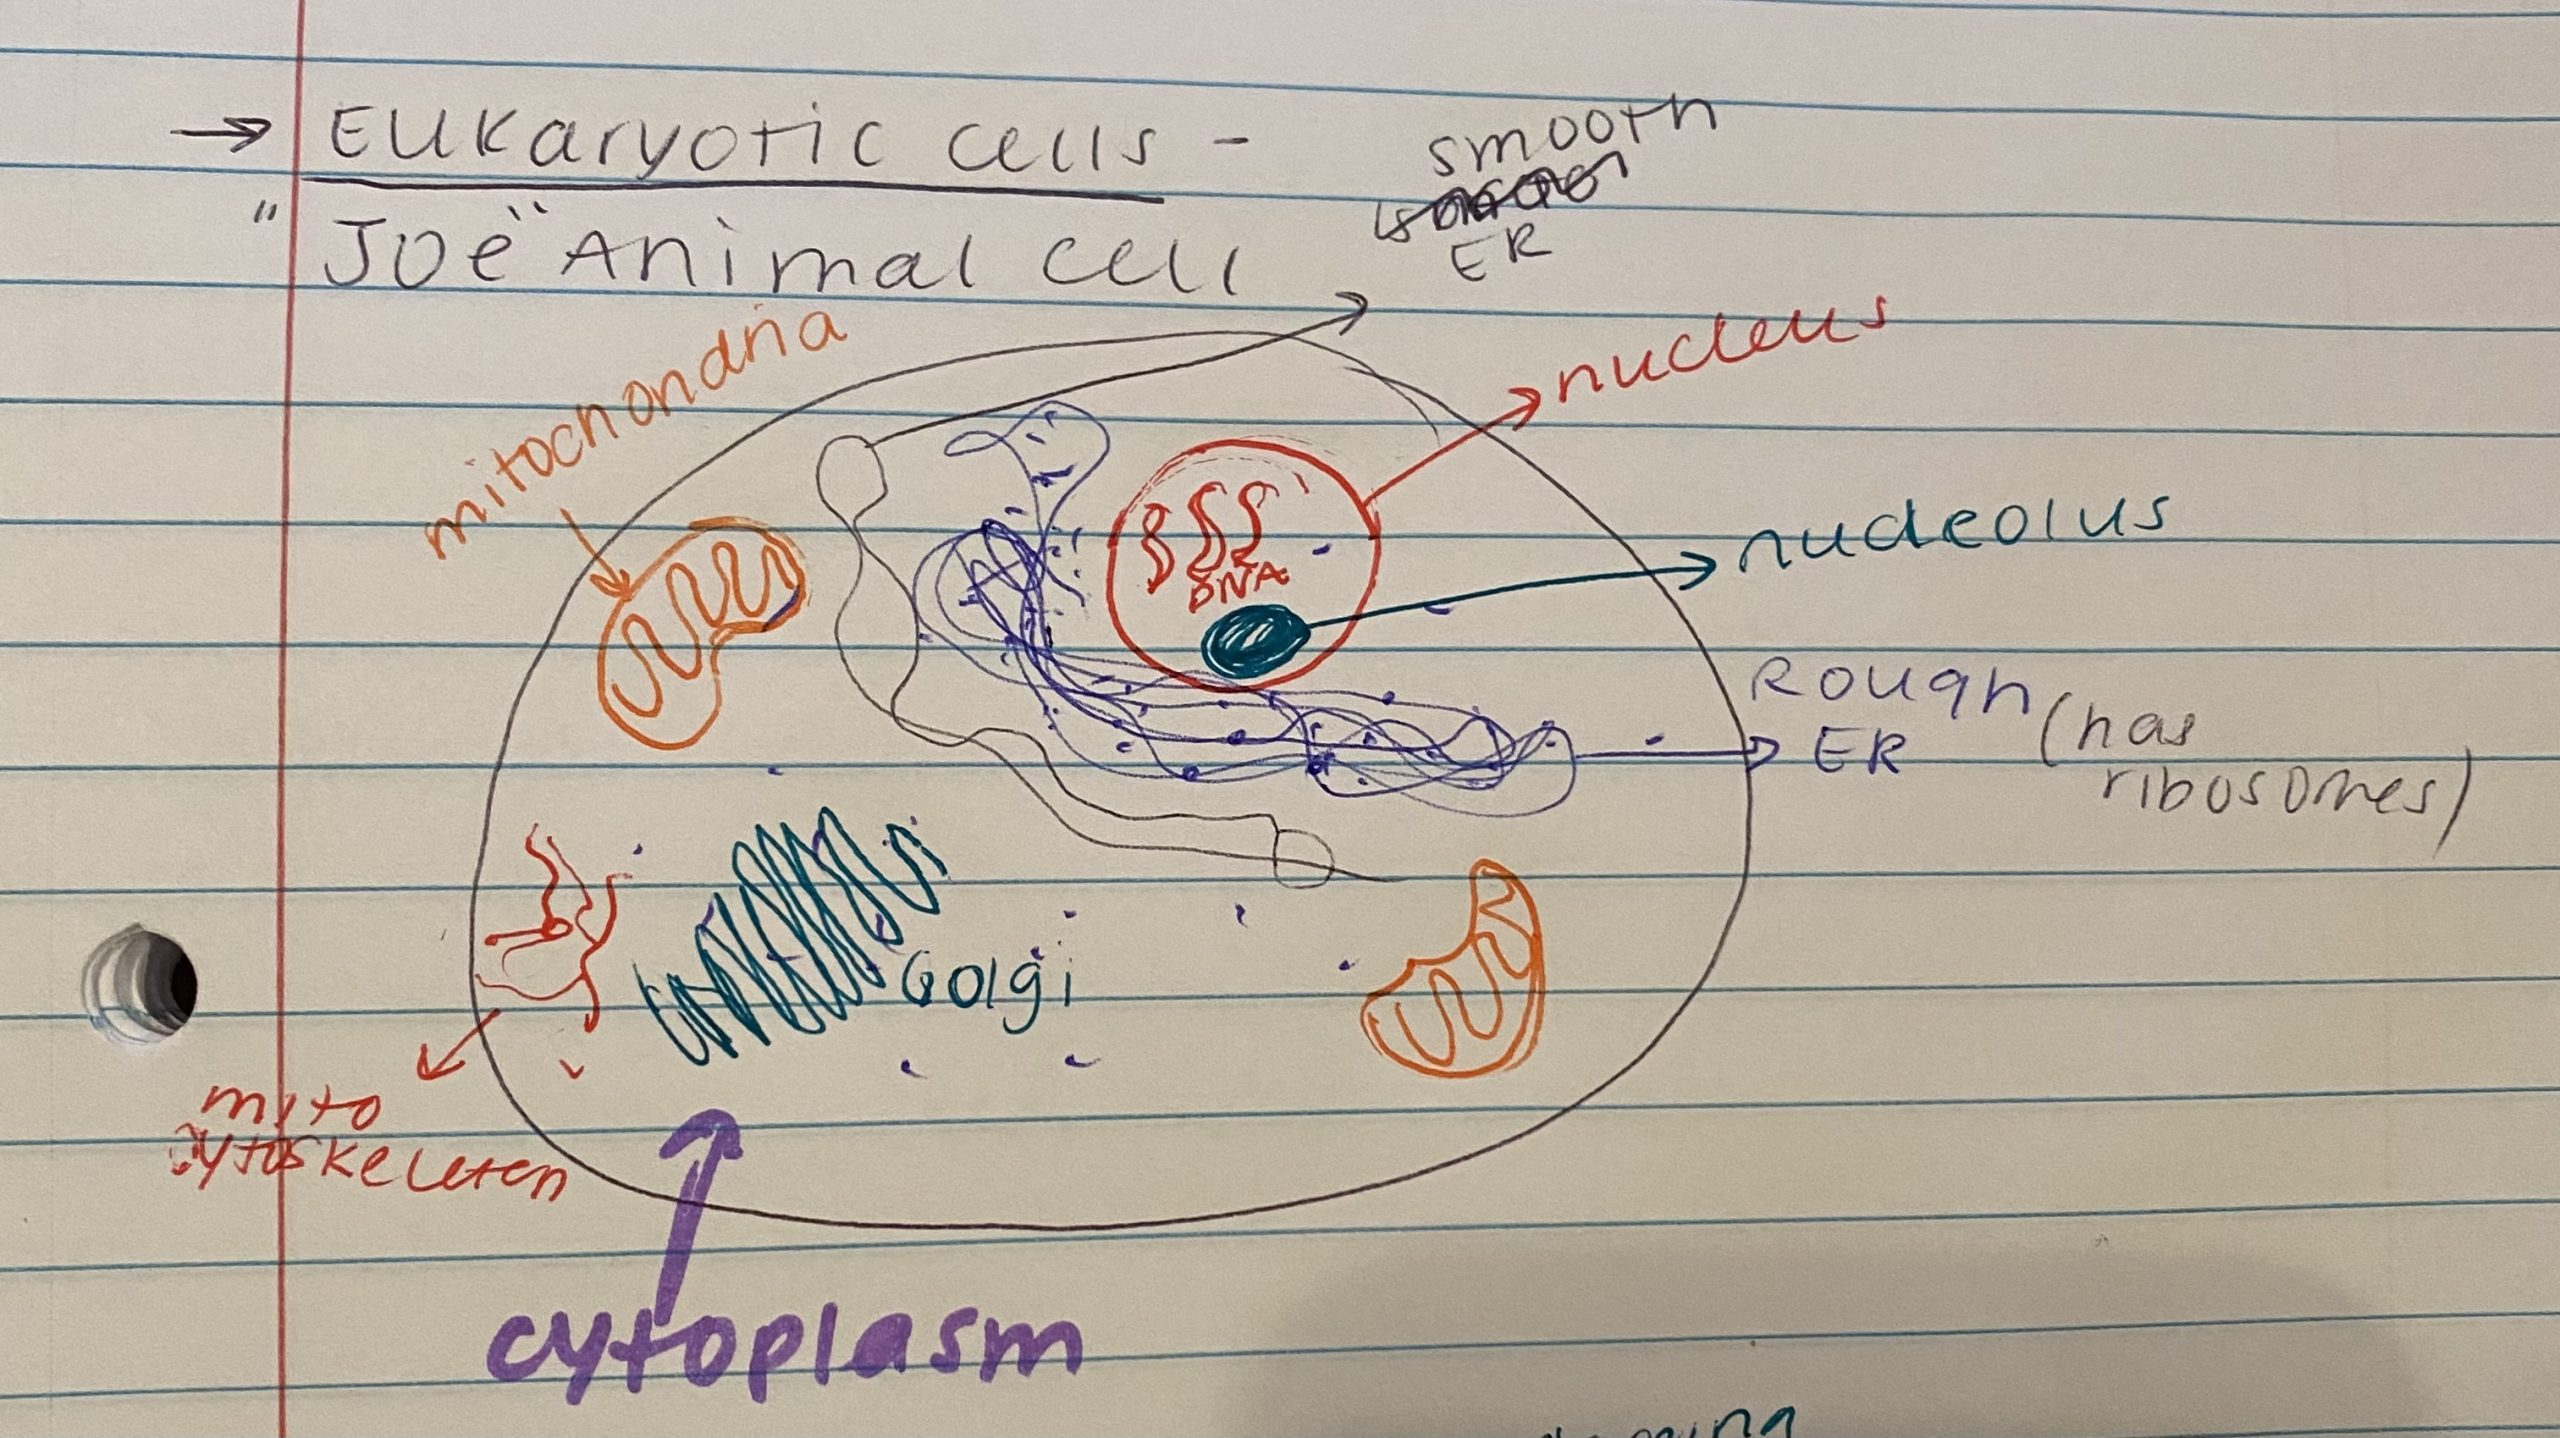 → Eukaryotic cells -
"Joe" Animal cell
smooth
ER
mitochondria
nucleus
DNA
nucleolus
Rough
ER
(has
ribosomes)
Golgi
mito
cytoskeleten
cytoplasm